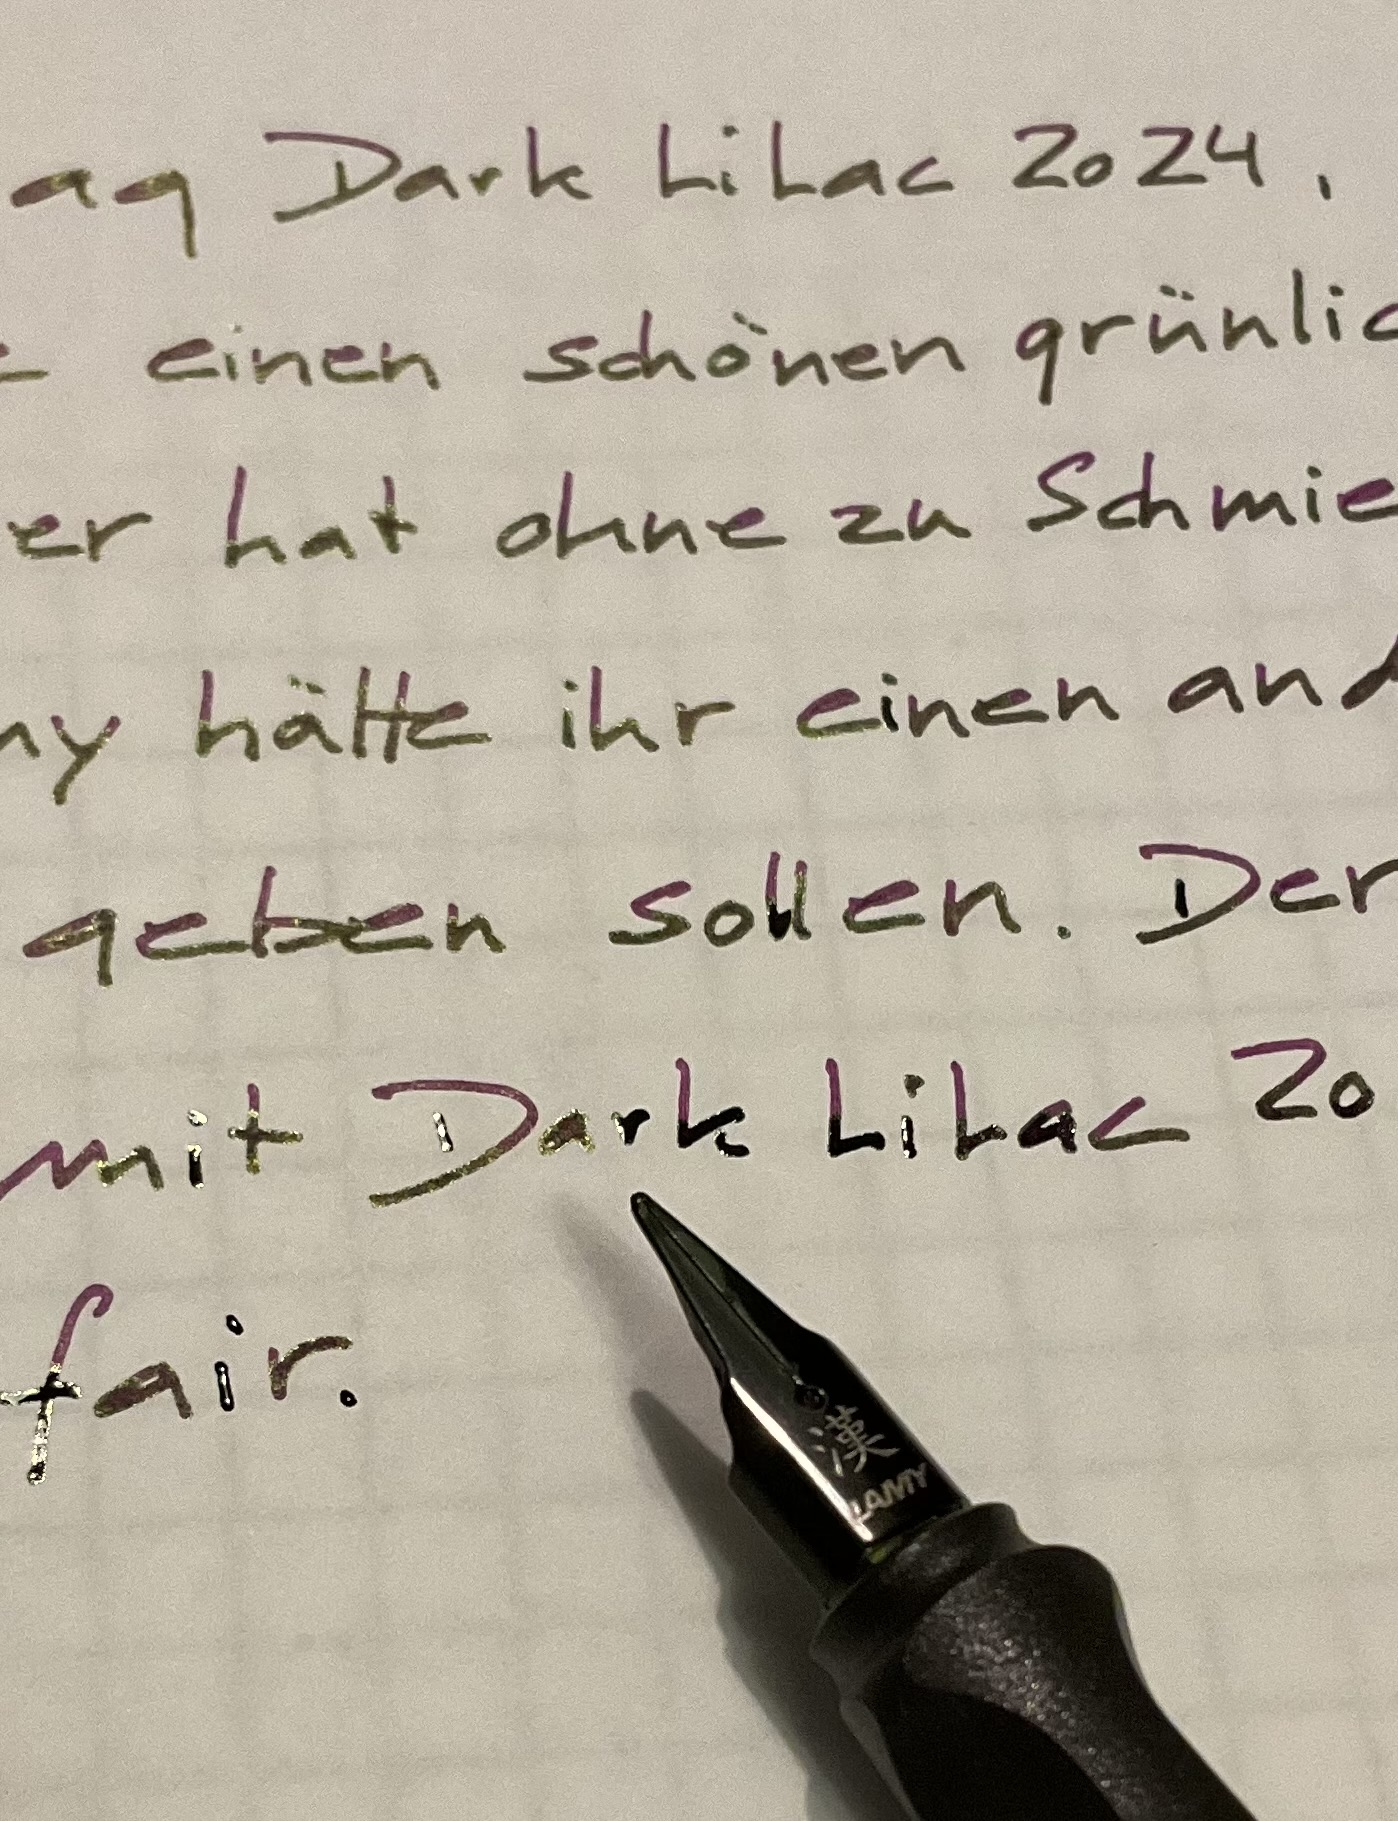 ag Dark Lilac 2024.
e einen schönen grünlic
er hat ohne zu Schmie
ny hätte ihr einen and
geben sollen. Der
mit Dark Lilac 20
fair.
漢
LAMY